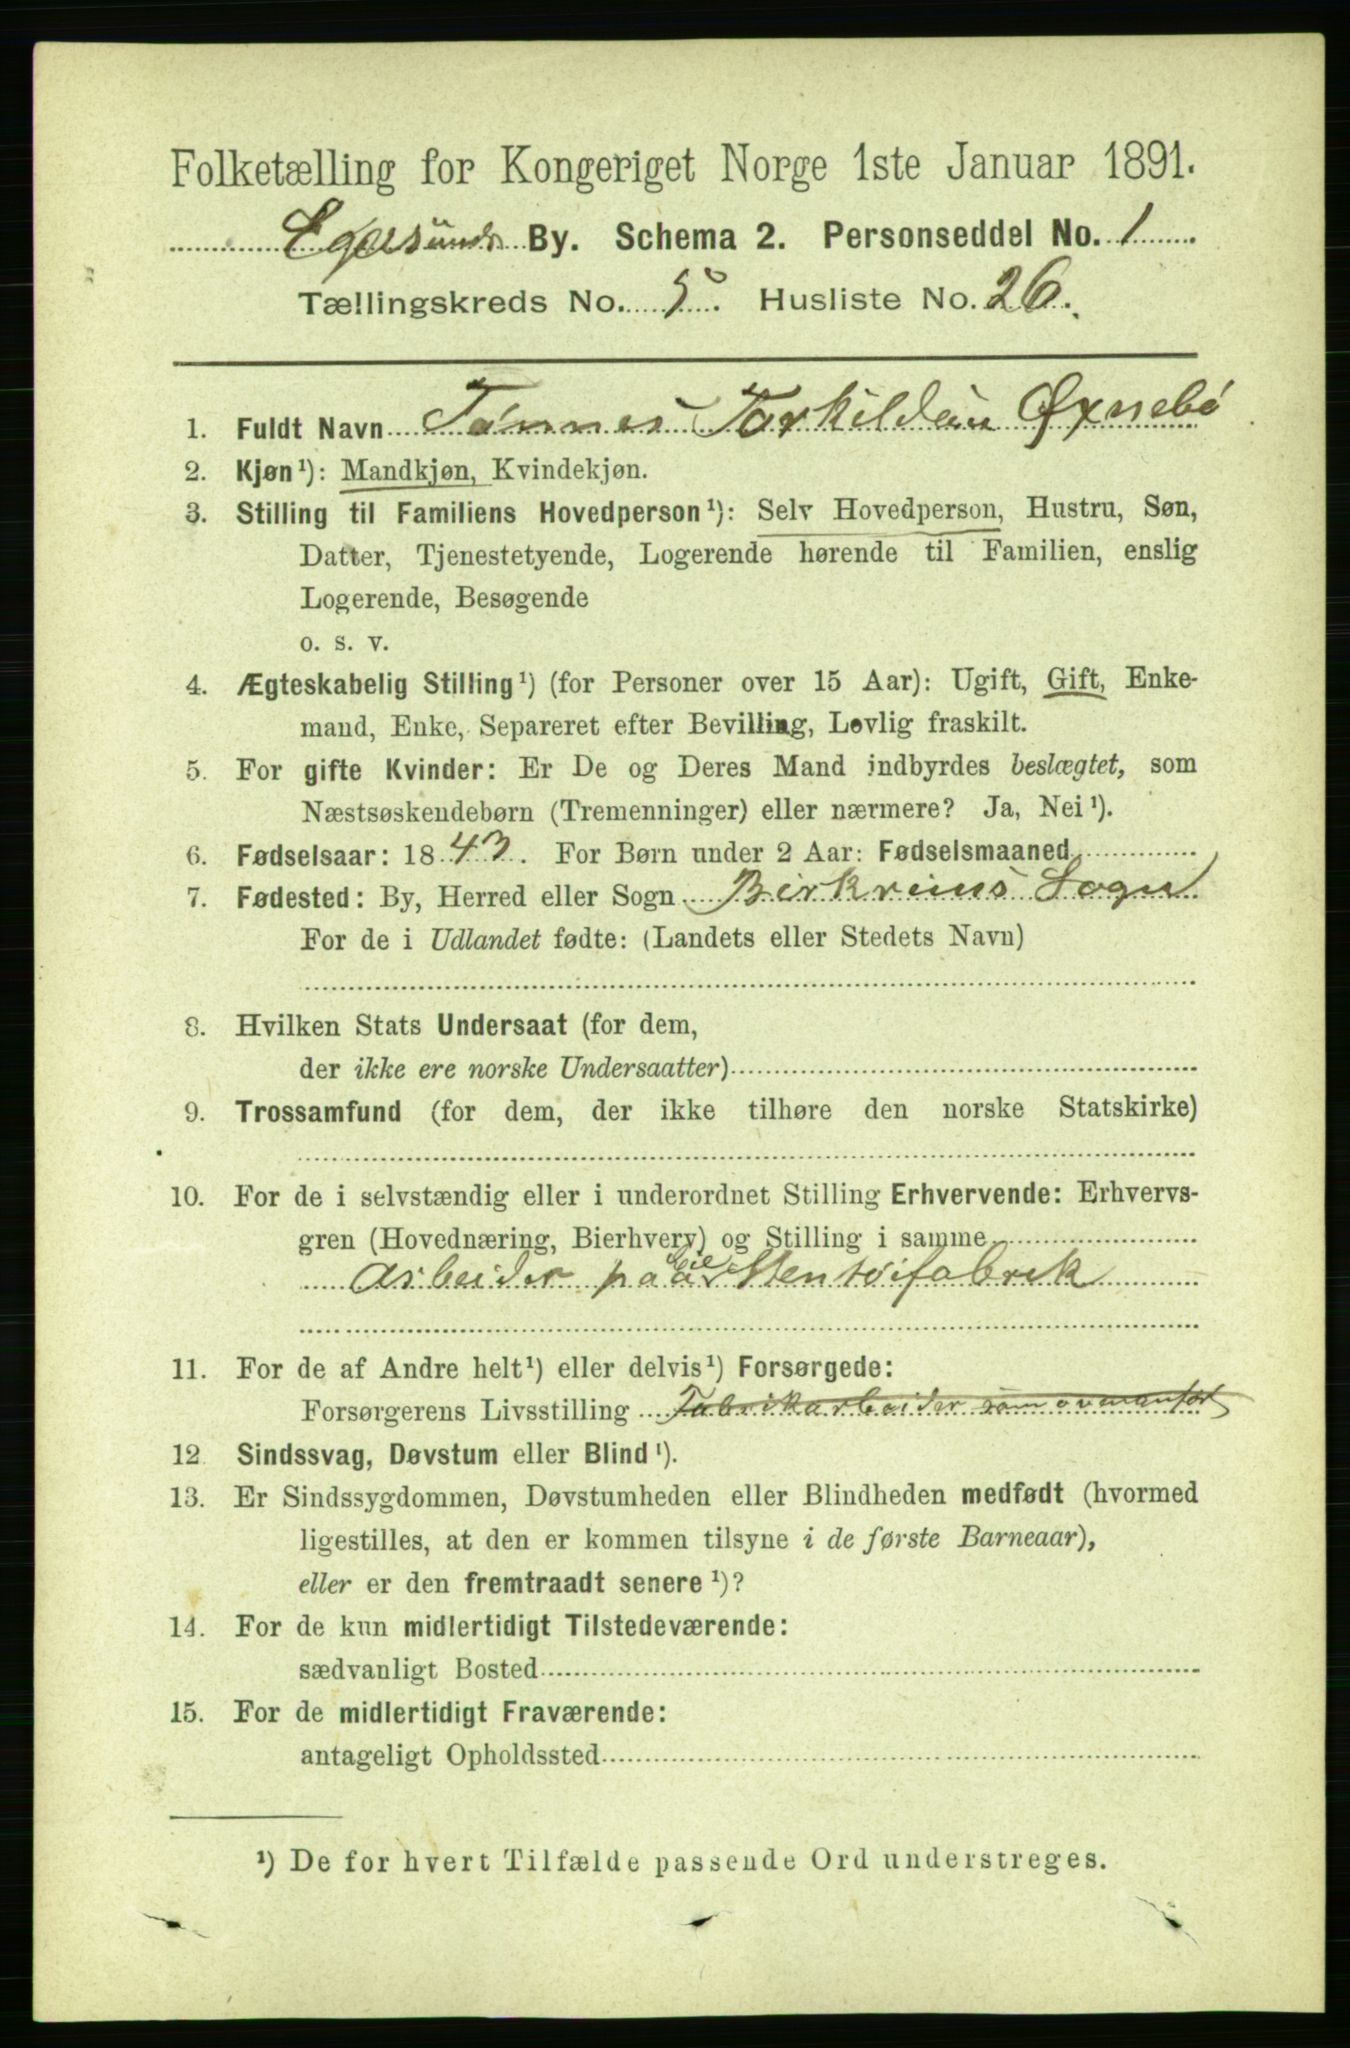 Folketælling for Kongeriget Norge 1ste Januar 1891.
Egersunds By. Schema 2. Personseddel No. 1
Tællingskreds No. 5. Husliste No. 26.
1. Fuldt Navn Tønnes Torkildsen Øxnebø
2. Kjøn¹): Mandkjøn, Kvindekjøn.
3. Stilling til Familiens Hovedperson¹): Selv Hovedperson, Hustru, Søn,
Datter, Tjenestetyende, Logerende hørende til Familien, enslig
Logerende, Besøgende
o. s. v.
4. Ægteskabelig Stilling¹) (for Personer over 15 Aar): Ugift, Gift, Enke-
mand, Enke, Separeret efter Bevilling, Lovlig fraskilt.
5. For gifte Kvinder: Er De og Deres Mand indbyrdes beslægtet, som
Næstsøskendebørn (Tremenninger) eller nærmere? Ja, Nei¹).
6. Fødselsaar: 1843. For Børn under 2 Aar: Fødselsmaaned
7. Fødested: By, Herred eller Sogn Birkreims Sogn
For de i Udlandet fødte: (Landets eller Stedets Navn)
8. Hvilken Stats Undersaat (for dem,
der ikke ere norske Undersaatter)
9. Trossamfund (for dem, der ikke tilhøre den norske Statskirke)
10. For de i selvstændig eller i underordnet Stilling Erhvervende: Erhvervs-
gren (Hovednæring, Bierhverv) og Stilling i samme
Arbeider paa Stentøifabrik
11. For de af Andre helt¹) eller delvis¹) Forsørgede:
Forsørgerens Livsstilling Fabrikarbeider som ovenanført
12 Sindssvag, Døvstum eller Blind¹).
13. Er Sindssygdommen, Døvstumheden eller Blindheden medfødt (hvormed
ligestilles, at den er kommen tilsyne i de første Barneaar),
eller er den fremtraadt senere¹)?
14. For de kun midlertidigt Tilstedeværende:
sædvanligt Bosted
15. For de midlertidigt Fraværende:
antageligt Opholdssted
¹) De for hvert Tilfælde passende Ord understreges.